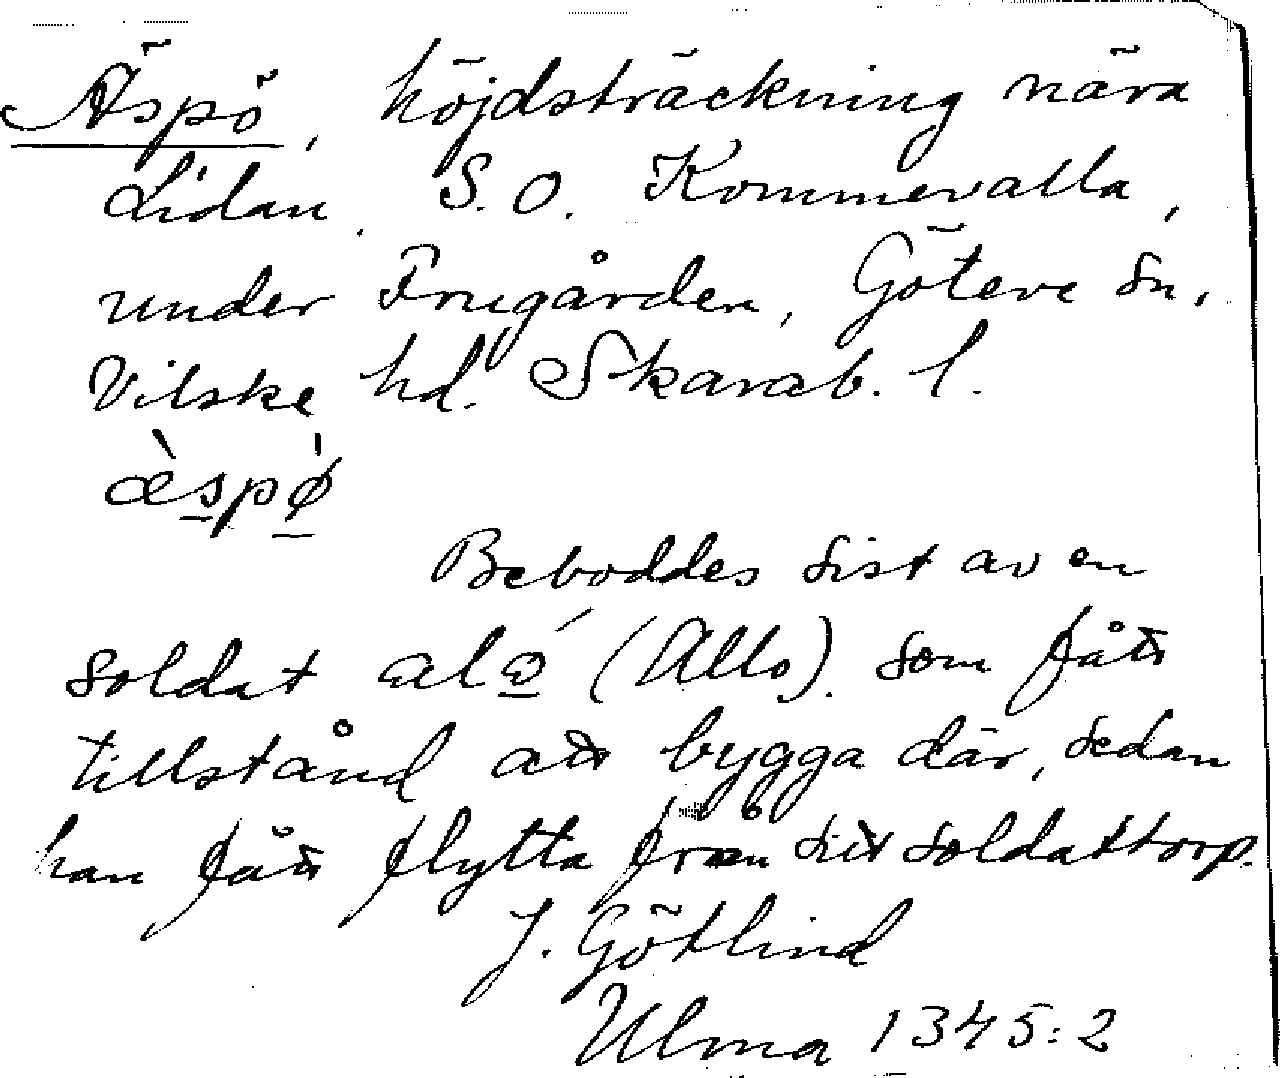 Äspö, höjdsträckning nära
Lidan, S.O. Kommevalla,
under Frugården, Göteve sn,
Vilske hd. Skarab. l.
æ̀spø̍
Beboddes sist av en
soldat alǿ (Allo). som fått
tillstånd att bygga där, sedan
han fått flytta från sitt soldattorp.
J. Götlind
Ulma 1345:2